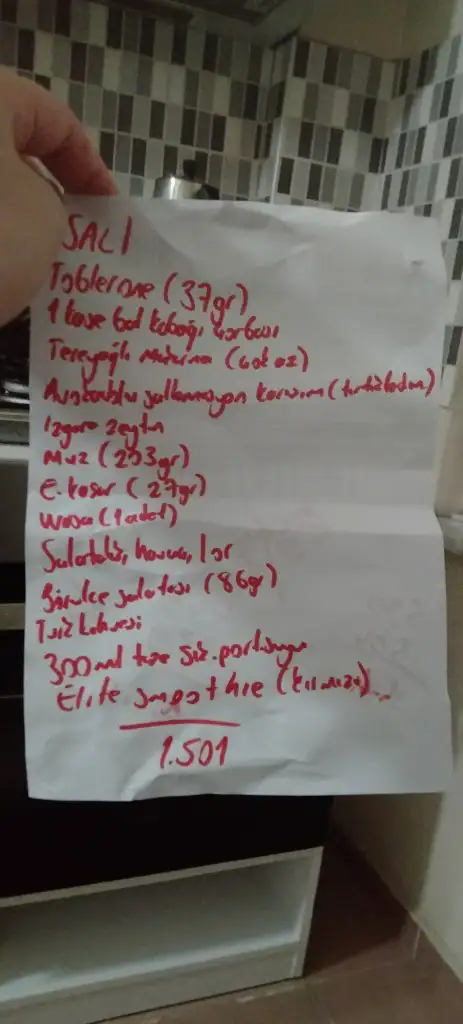 SALI
Toblerone (37gr)
1 kase bal kabağı çorbası
Tereyağlı makarna (çok az)
karışım
Izgara zeytin
Muz (233gr)
E. kaşar (27gr)
Wasa (1 adet)
Salatalık, havuç, lor
Börülce salatası (86gr)
Türk kahvesi
300ml taze sık. portakal
Elite smoothie (kırmızı)
1.501